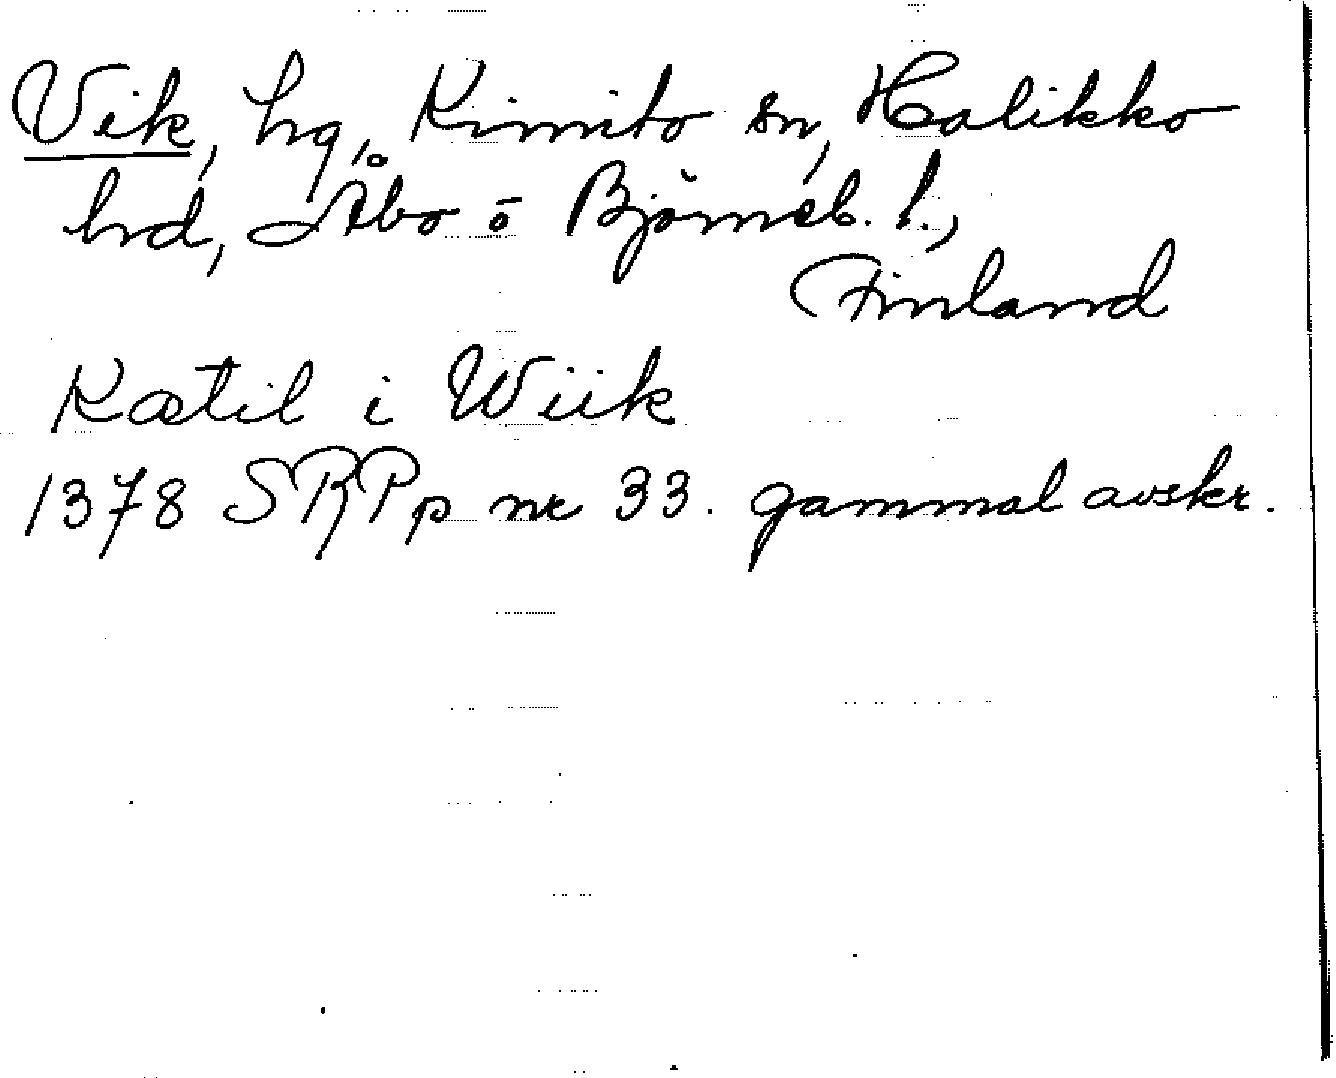 Vik, hg, Kimito sn, Halikko
hrd, Åbo o Björneb. l.,
Finland
Kætil i Wiik
1378 SRPp nr 33. gammal avskr.